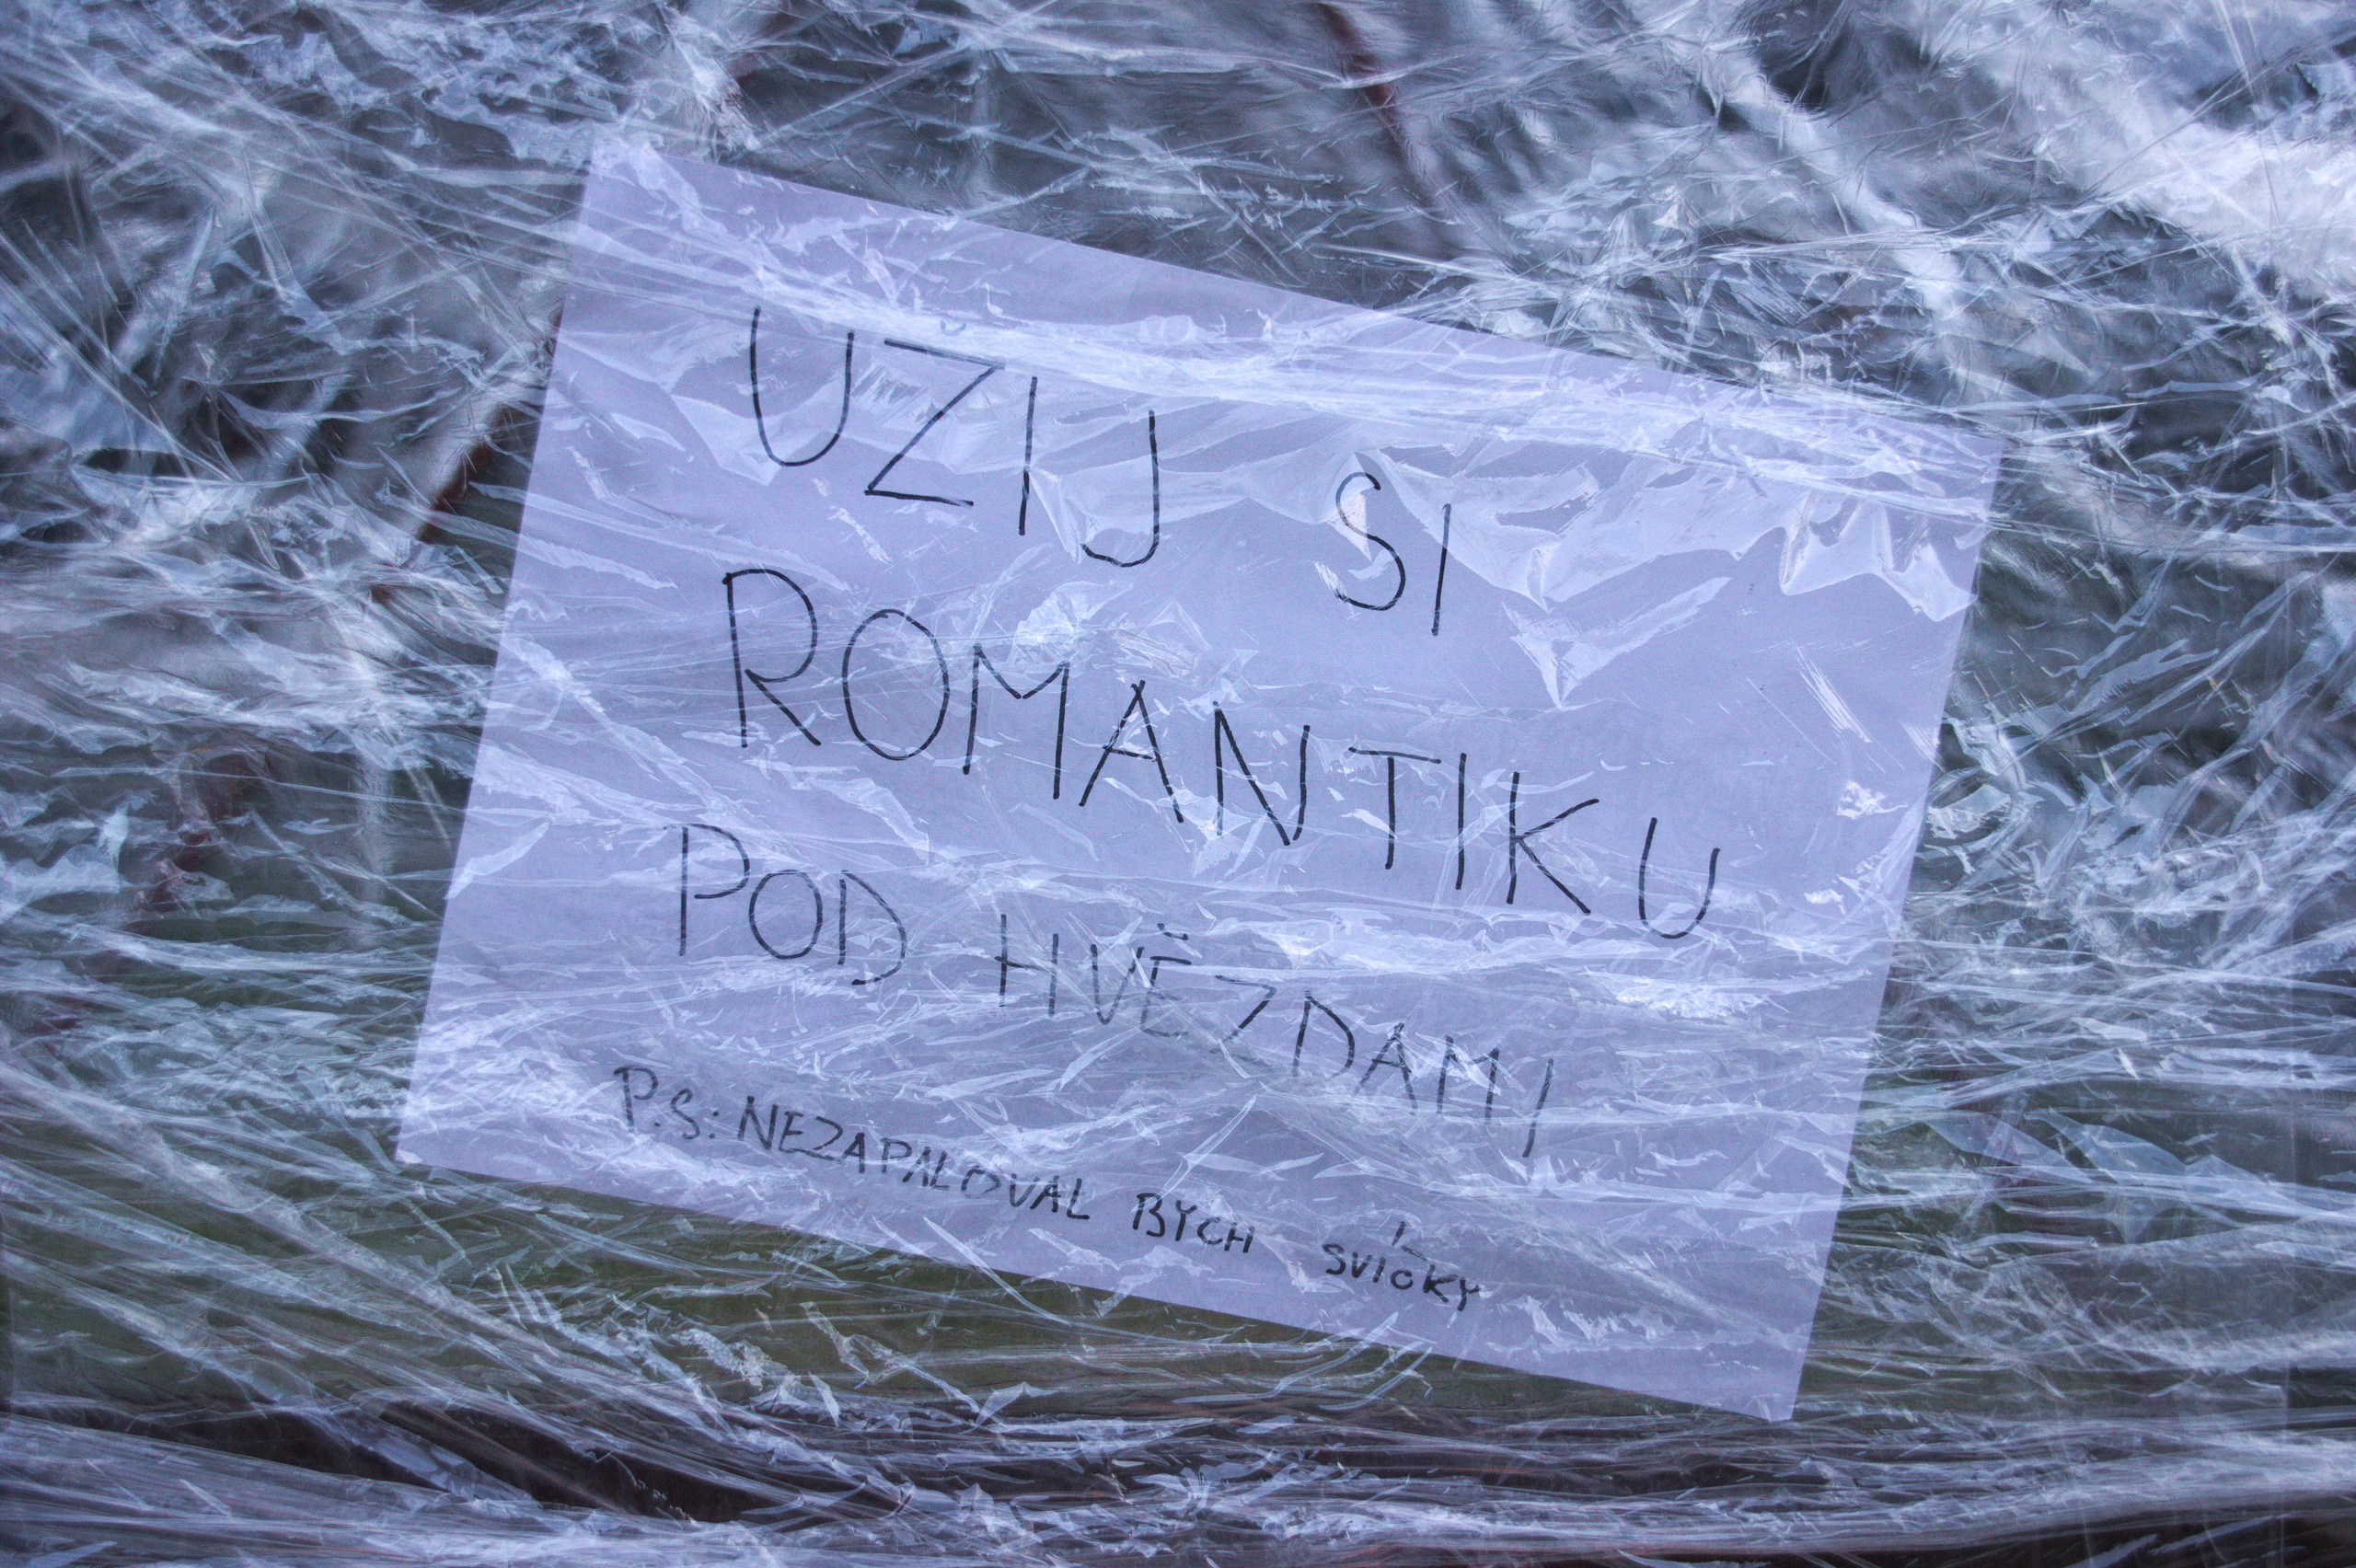 UZIJ SI
ROMANTIKU
POD HVĚZDAMI
P.S.: NEZAPALOVAL BYCH SVÍČKY